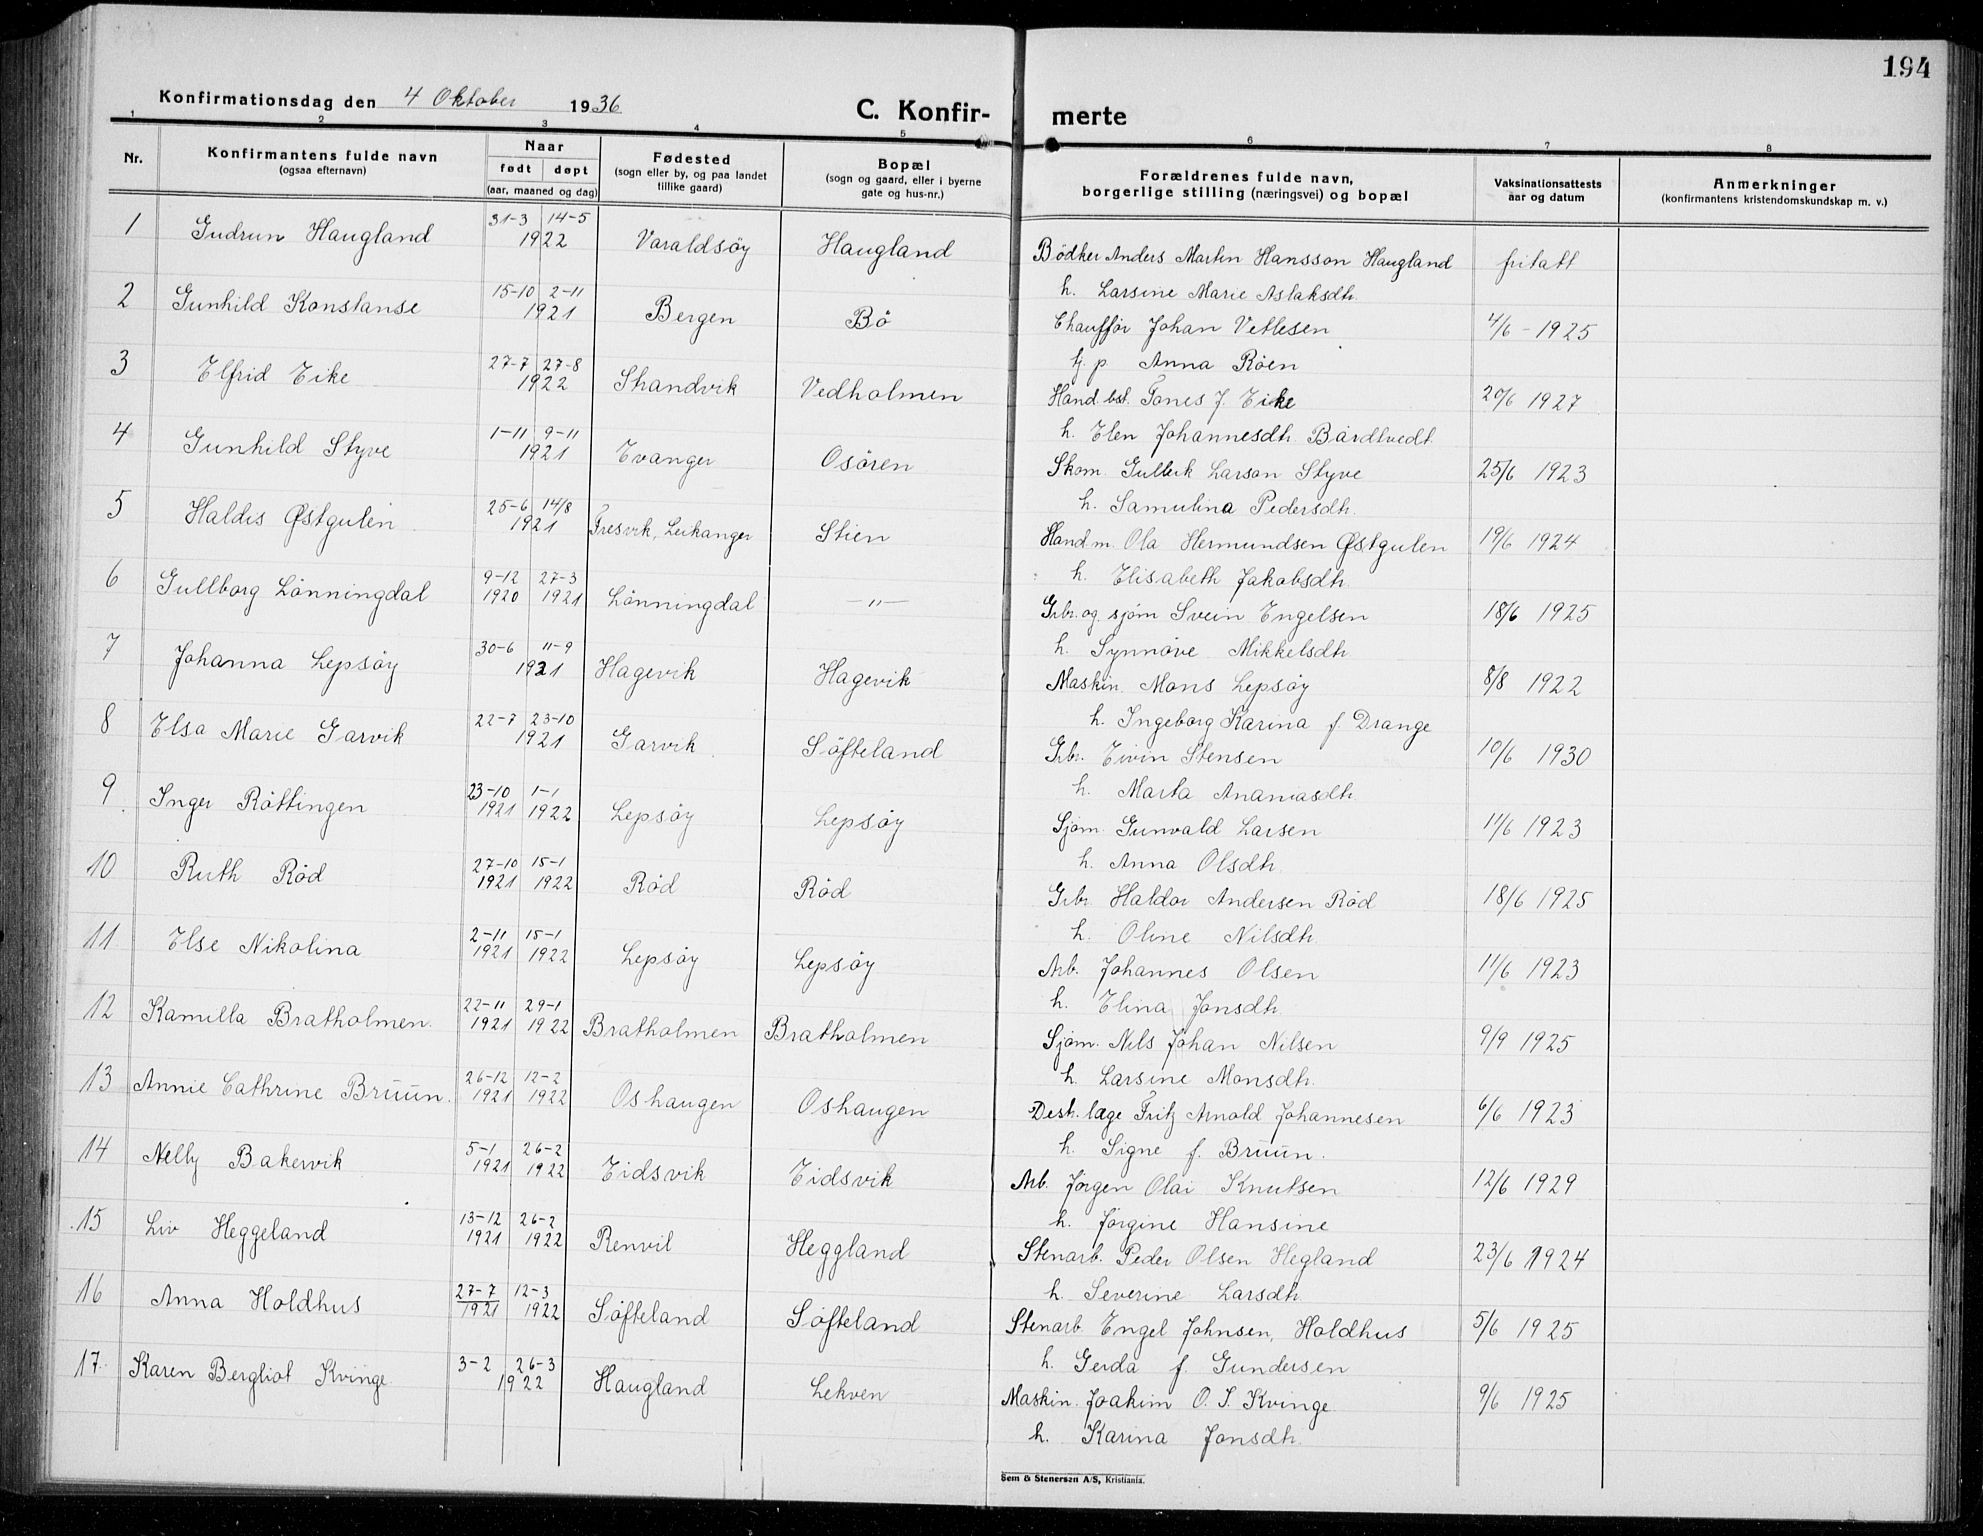 194
Konfirmationsdag den 4 Oktober 1936
C. Konfir- merte
1 2 3 4 5 6 7 8
Nr.
Konfirmantens fulde navn
(ogsaa efternavn)
Naar
født døpt
(aar, maaned og dag)
Fødested
(sogn eller by, og paa landet
tillike gaard)
Bopæl
(sogn og gaard, eller i byerne
gate og hus-nr.)
Forældrenes fulde navn,
borgerlige stilling (næringsvei) og bopæl
Vaksinationsattests
aar og datum
Anmerkninger
(konfirmantens kristendomskundskap m. v.)
1 Gudrun Haugland 31-3 14-5 1922 Varaldsöy Haugland Bödker Anders Martin Hansson Haugland fritatt
h. Larsine Marie Aslaksdh.
2 Gunhild Konstanse 15-10 2-11 1921 Bergen Bö Chauffør Johan Vetlesen 4/6 - 1925
h. p Anna Röen
3 Elfrid Eike 27-7 27-8 1922 Skandvik Vedholmen Hand. bst. Tones J. Eike 20/6 1927
h. Elen Johannesdh. Bårdtvedt
4 Gunhild Styve 1-11 9-11 1921 Evanger Osören Skom. Gullerk Larson Styve 25/6 1923
h. Samulina Pedersdh.
5 Haldis Østgulen 25-6 14/8 1921 Fresvik, Leikanger Stien Handm. Ola Hermundsen Østgulen 19/6 1924
h. Elisabeth Jakobsdh.
6 Gullborg Lönningdal 9-12 1920 27-3 1921 Lönningdal -"- Grbr. og sjøm Svein Engelsen 18/6 1925
h. Synnöve Mikkelsdh
7 Johanna Lepsöy 30-6 11-9 1921 Hagevik Hagevik Maskin. Mons Lepsöy 8/8 1922
h. Ingeborg Karina f. Drange
8 Elsa Marie Garvik 22-7 23-10 1921 Garvik Söfteland Grbr. Eivin Stensen 10/6 1930
h. Marta Ananiasdh.
9 Inger Röttingen 23-10 1921 1-1 1922 Lepsöy Lepsöy Sjøm. Gunvald Larsen 11/6 1923
h. Anna Olsdh.
10 Ruth Röd 27-10 1921 15-1 1922 Röd Röd Grbr. Haldor Andersen Röd 18/6 1925
h. Oline Nilsdh.
11 Else Nikolina 2-11 1921 15-1 1922 Lepsöy Lepsöy Arb. Johannes Olsen 11/6 1923
h. Elina Jonsdh.
12 Kamilla Bratholmen. 22-11 1921 29-1 1922 Bratholmen Bratholmen Sjøm. Nils Johan Nilsen 9/9 1925
h. Larsine Monsdh.
13 Annie Cathrine Bruun. 26-12 1921 12-2 1922 Oshaugen Oshaugen Destr. læge Fritz Arnold Johannesen 6/6 1923
h. Signe f. Bruun.
14 Nelly Bakervik 5-1 1921 26-2 1922 Eidsvik Eidsvik Arb. Jörgen Olai Knutsen 12/6 1929
h. Jörgine Hansine
15 Liv Heggeland 13-12 1921 26-2 1922 Renvil Heggland Stenarb. Peder Olsen Hegland 23/6 1924
h. Severine Larsdh.
16 Anna Holdhus 27-7 1921 12-3 1922 Söfteland Söfteland Stenarb. Engel Johnsen, Holdhus 5/6 1925
h. Gerda f. Gundersen
17. Karen Bergliot Kvinge 3-2 26-3 1922 Haugland Lekven Maskin. Joakim O. S. Kvinge 9/6 1925
h. Karina Jonsdh.
Sem & Stenersen A/S, Kristiania.